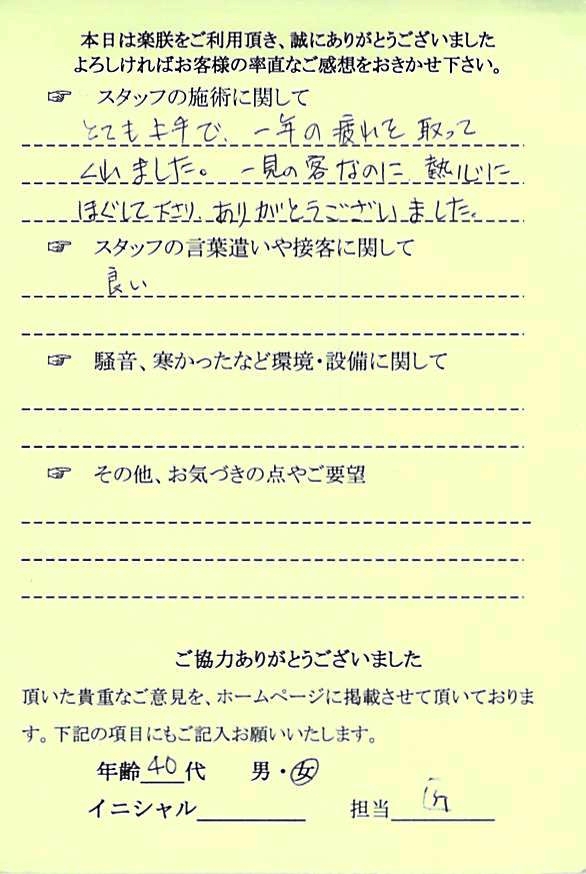 本日は楽朕をご利用頂き、誠にありがとうございました
よろしければお客様の率直なご感想をおきかせ下さい。
☞ スタッフの施術に関して
とても上手で、一年の疲れを取って
くれました。一見の客なのに、熱心に
ほぐして下さり、ありがとうございました。
☞ スタッフの言葉遣いや接客に関して
良い
☞ 騒音、寒かったなど環境・設備に関して
☞ その他、お気づきの点やご要望
ご協力ありがとうございました
頂いた貴重なご意見を、ホームページに掲載させて頂いておりま
す。下記の項目にもご記入お願いいたします。
年齢 40 代 男・女
イニシャル 担当